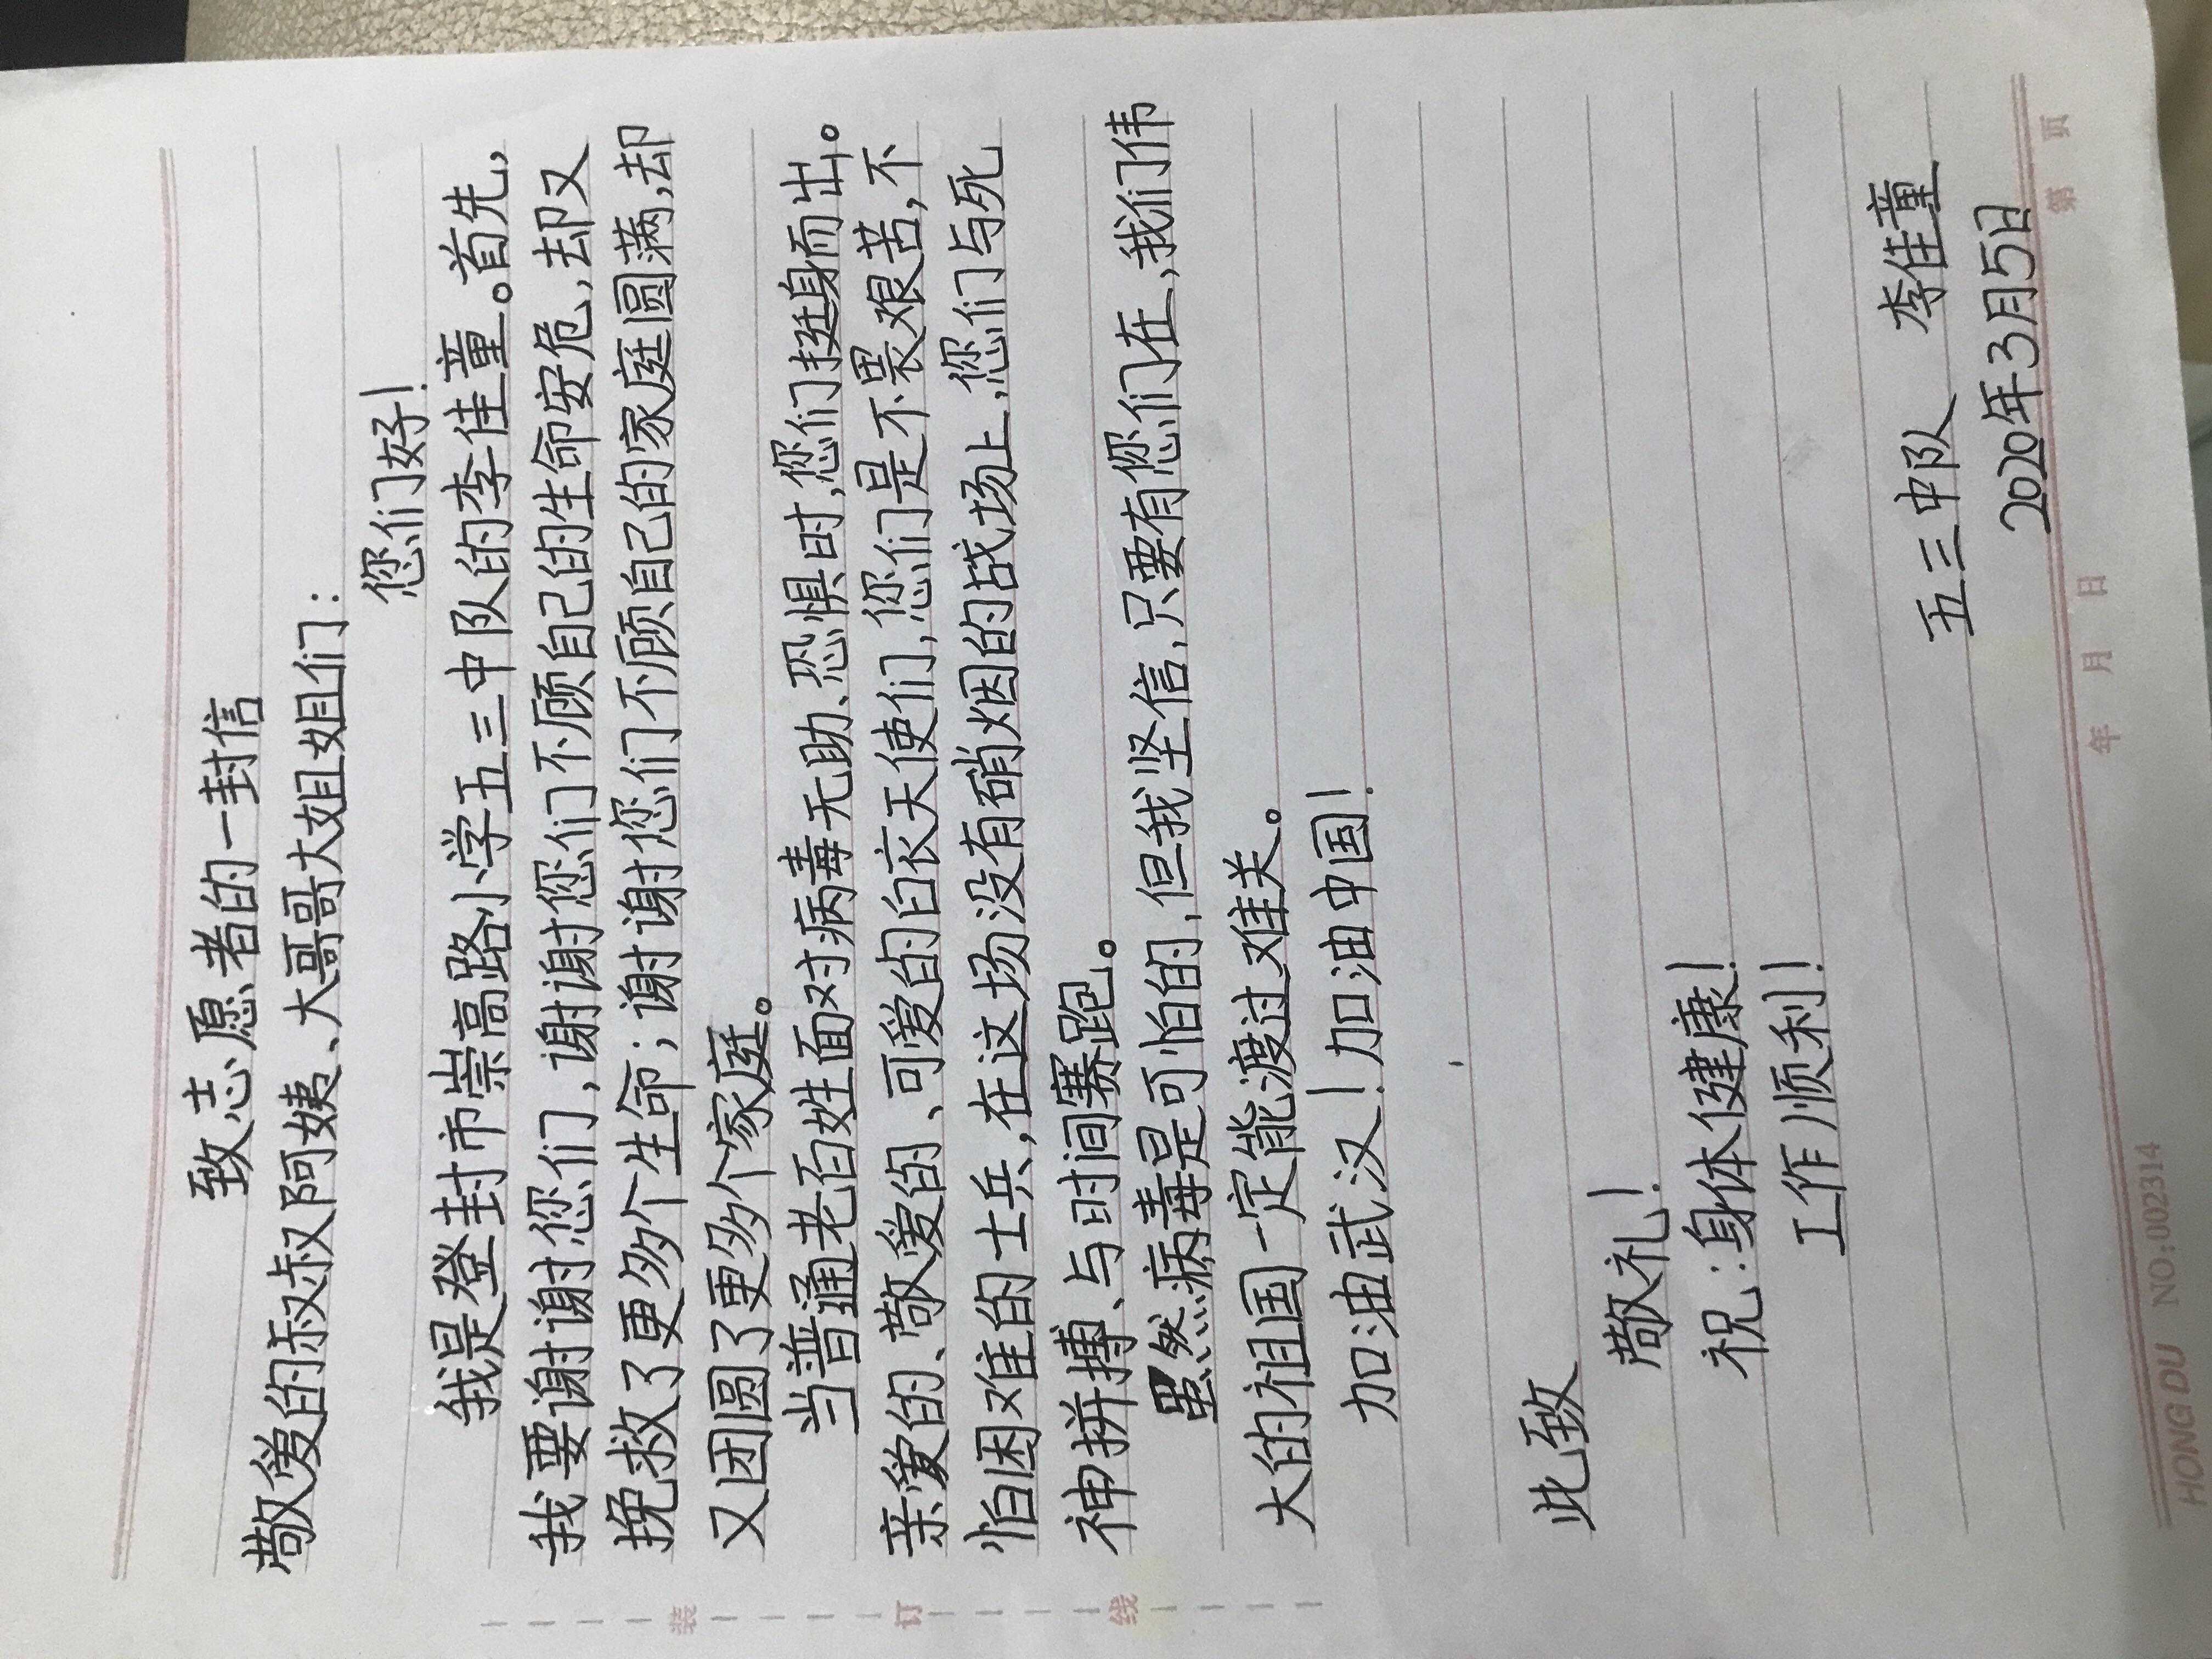 致志愿者的一封信
敬爱的叔叔阿姨、大哥哥大姐姐们：
您们好！
我是登封市崇高路小学五三中队的李佳童。首先，
我要谢谢您们，谢谢您们不顾自己的生命安危，却又
挽救了更多个生命；谢谢您们不顾自己的家庭圆满，却
又团圆了更多个家庭。
当普通老百姓面对病毒无助、恐惧时，您们挺身而出。
亲爱的、敬爱的、可爱的白衣天使们，您们是不畏艰苦，不
怕困难的士兵，在这场没有硝烟的战场上，您们与死
神拼搏、与时间赛跑。
虽然病毒是可怕的，但我坚信，只要有您们在，我们伟
大的祖国一定能渡过难关。
加油武汉！加油中国！
此致
敬礼！
祝：身体健康！
工作顺利！
五三中队 李佳童
2020年3月5日
装 订 线
年 月 日 第 页
HONG DU NO:002314